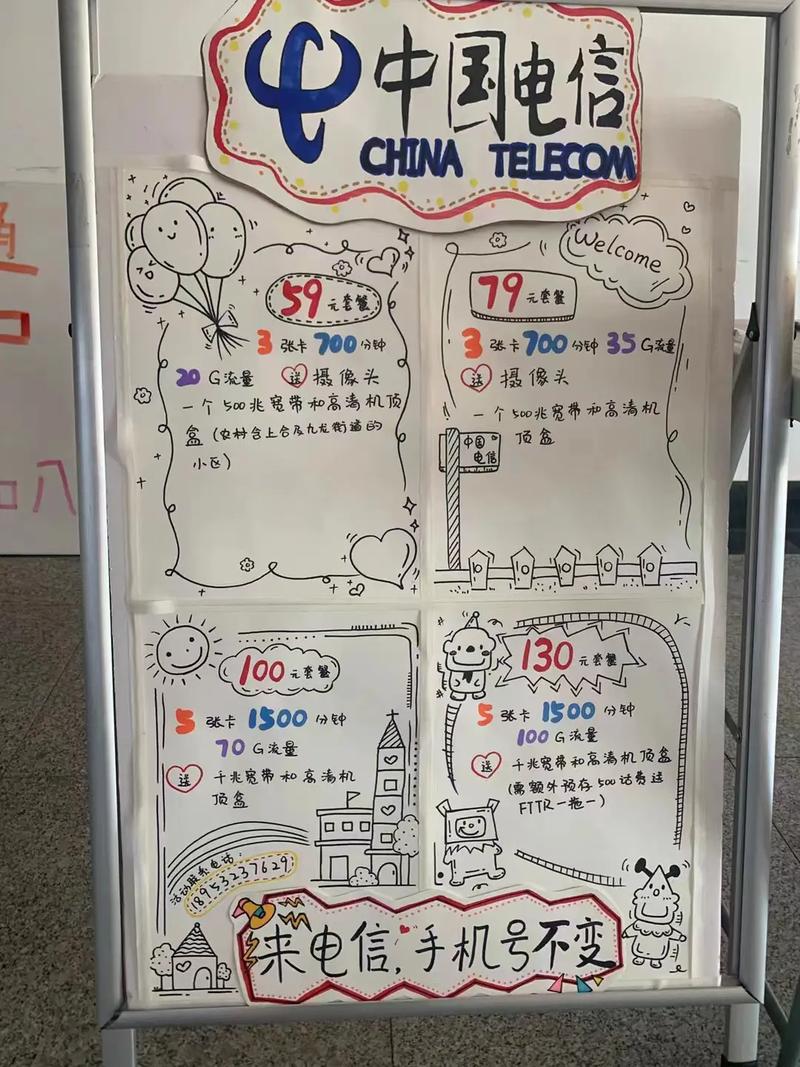 中国电信
CHINA TELECOM
59元套餐
3张卡700分钟
20G流量 送摄像头
一个500兆宽带和高清机顶
盒(农村含上合及九龙街道的
小区)
Welcome
79元套餐
3张卡700分钟35G流量
送摄像头
一个500兆宽带和高清机
顶盒
中国
电信
100元套餐
5张卡1500分钟
70G流量
送千兆宽带和高清机
顶盒
活动联系电话:
18953237629
130元套餐
5张卡1500分钟
100G流量
送千兆宽带和高清机顶盒
(需额外预存500话费送
FTTR一拖一)
来电信,手机号不变